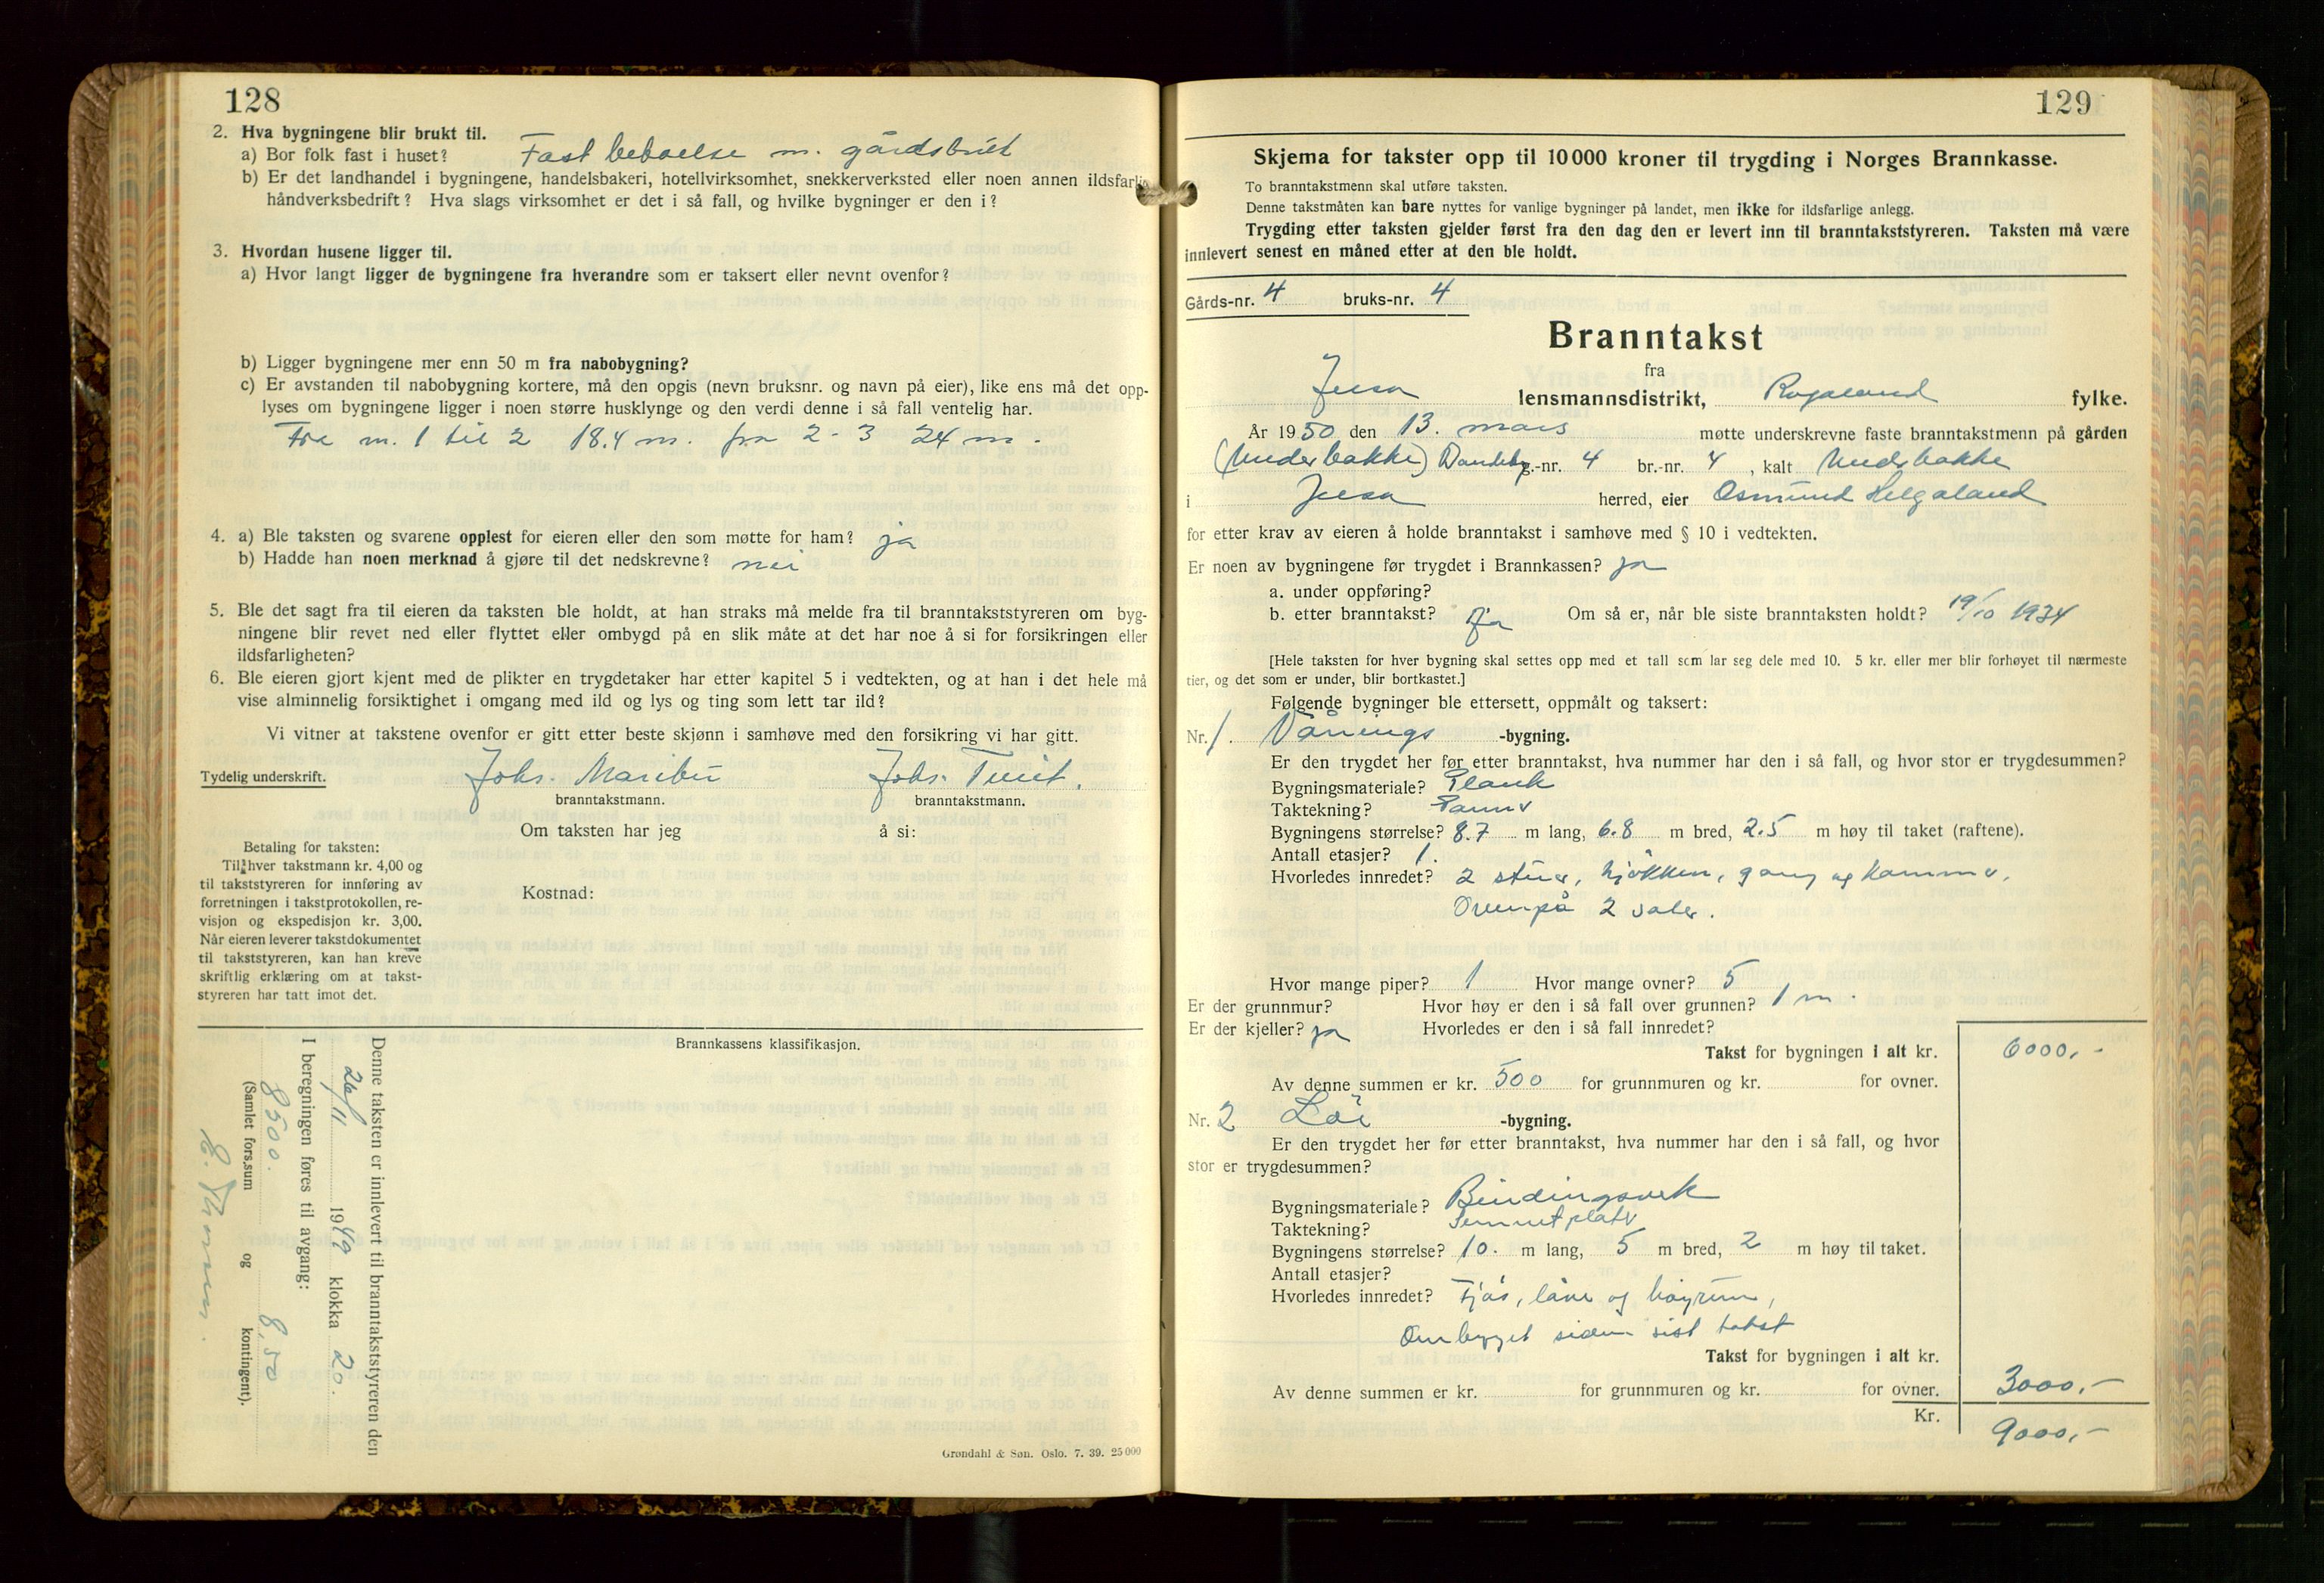 128
2. Hva bygningene blir brukt til.
a) Bor folk fast i huset? Fast beboelse m. gårdsbruk
b) Er det landhandel i bygningene, handelsbakeri, hotellvirksomhet, snekkerverksted eller noen annen ildsfarlig
håndverksbedrift? Hva slags virksomhet er det i så fall, og hvilke bygninger er den i?
3. Hvordan husene ligger til.
a) Hvor langt ligger de bygningene fra hverandre som er taksert eller nevnt ovenfor?
b) Ligger bygningene mer enn 50 m fra nabobygning?
c) Er avstanden til nabobygning kortere, må den opgis (nevn bruksnr. og navn på eier), like ens må det opp-
lyses om bygningene ligger i noen større husklynge og den verdi denne i så fall ventelig har.
Fra nr. 1 til 2 18.4 m. fra 2 - 3 24 m.
4. a) Ble taksten og svarene opplest for eieren eller den som møtte for ham? ja
b) Hadde han noen merknad å gjøre til det nedskrevne? nei
5. Ble det sagt fra til eieren da taksten ble holdt, at han straks må melde fra til branntakststyreren om byg-
ningene blir revet ned eller flyttet eller ombygd på en slik måte at det har noe å si for forsikringen eller
ildsfarligheten?
6. Ble eieren gjort kjent med de plikter en trygdetaker har etter kapitel 5 i vedtekten, og at han i det hele må
vise alminnelig forsiktighet i omgang med ild og lys og ting som lett tar ild?
Vi vitner at takstene ovenfor er gitt etter beste skjønn i samhøve med den forsikring vi har gitt.
Tydelig underskrift. Johs. Maribu Johs. Tveit.
branntakstmann. branntakstmann.
Om taksten har jeg å si:
Betaling for taksten:
Til hver takstmann kr. 4,00 og
til takststyreren for innføring av
forretningen i takstprotokollen, re-
visjon og ekspedisjon kr. 3,00.
Når eieren leverer takstdokumentet
til takststyreren, kan han kreve
skriftlig erklæring om at takst-
styreren har tatt imot det.
Kostnad:
Brannkassens klassifikasjon.
Denne taksten er innlevert til branntakststyreren den
26/11 1949 klokka 20.
I beregningen føres til avgang:
8500. og 8,50
(Samlet fors.sum og kontingent).
Grøndahl & Søn. Oslo. 7. 39. 25 000
129
Skjema for takster opp til 10 000 kroner til trygding i Norges Brannkasse.
To branntakstmenn skal utføre taksten.
Denne takstmåten kan bare nyttes for vanlige bygninger på landet, men ikke for ildsfarlige anlegg.
Trygding etter taksten gjelder først fra den dag den er levert inn til branntakststyreren. Taksten må være
innlevert senest en måned etter at den ble holdt.
Gårds-nr. 4 bruks-nr. 4
Branntakst
fra
Jelsa lensmannsdistrikt, Rogaland fylke.
År 1950 den 13. mars møtte underskrevne faste branntakstmenn på gården
(Underbakke) g.-nr. 4 br.-nr. 4, kalt Undebakke
i Jelsa herred, eier Osmund Helgaland
for etter krav av eieren å holde branntakst i samhøve med § 10 i vedtekten.
Er noen av bygningene før trygdet i Brannkassen? ja
a. under oppføring?
b. etter branntakst? Ja Om så er, når ble siste branntaksten holdt? 19/10 1934
[Hele taksten for hver bygning skal settes opp med et tall som lar seg dele med 10. 5 kr. eller mer blir forhøyet til nærmeste
tier, og det som er under, blir bortkastet.]
Følgende bygninger ble ettersett, oppmålt og taksert:
Nr. 1. Vånings -bygning.
Er den trygdet her før etter branntakst, hva nummer har den i så fall, og hvor stor er trygdesummen?
Bygningsmateriale? Plank
Taktekning? Panner
Bygningens størrelse? 8.7 m lang, 6.8 m bred, 2.5 m høy til taket (raftene).
Antall etasjer? 1.
Hvorledes innredet? 2 stuer, kjøkken, gang og kammer.
Ovenpå 2 saler.
Hvor mange piper? 1 Hvor mange ovner? 5
Er der grunnmur? Hvor høy er den i så fall over grunnen? 1 m.
Er der kjeller? ja Hvorledes er den i så fall innredet?
Takst for bygningen i alt kr. 6000,-
Av denne summen er kr. 500 for grunnmuren og kr. for ovner.
Nr. 2 Løe -bygning.
Er den trygdet her før etter branntakst, hva nummer har den i så fall, og hvor
stor er trygdesummen?
Bygningsmateriale? Bindingsverk
Taktekning? Sementplater
Bygningens størrelse? 10. m lang, 5 m bred, 2 m høy til taket.
Antall etasjer?
Hvorledes innredet? Fjøs, låve og høyrum,
Ombygget siden sist takst
Takst for bygningen i alt kr.
Av denne summen er kr. for grunnmuren og kr. for ovner. 3000,-
Kr. 9000,-